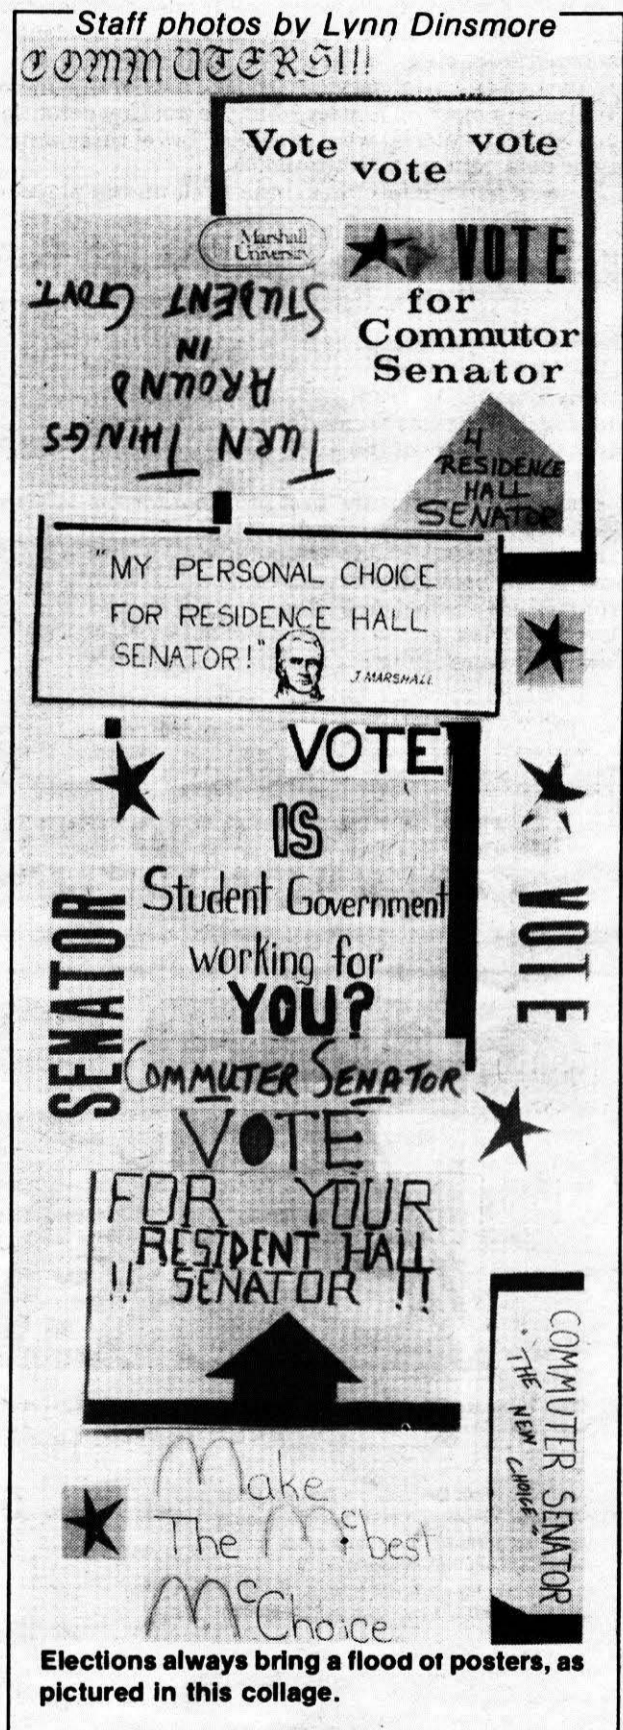 Staff photos by Lynn Dinsmore
COMMUTERS!!!
Vote vote vote
Marshall
University
VOTE
for
Commutor
Senator
TURN THINGS
AROUND
IN
STUDENT GOVT.
4
RESIDENCE
HALL
SENATOR
"MY PERSONAL CHOICE
FOR RESIDENCE HALL
SENATOR!"
J. MARSHALL
VOTE
IS
Student Government
working for
YOU?
SENATOR
VOTE
COMMUTER SENATOR
VOTE
FOR YOUR
RESIDENT HALL
!! SENATOR !!
COMMUTER SENATOR
"THE NEW CHOICE"
Make
The Mcbest
McChoice
Elections always bring a flood of posters, as
pictured in this collage.